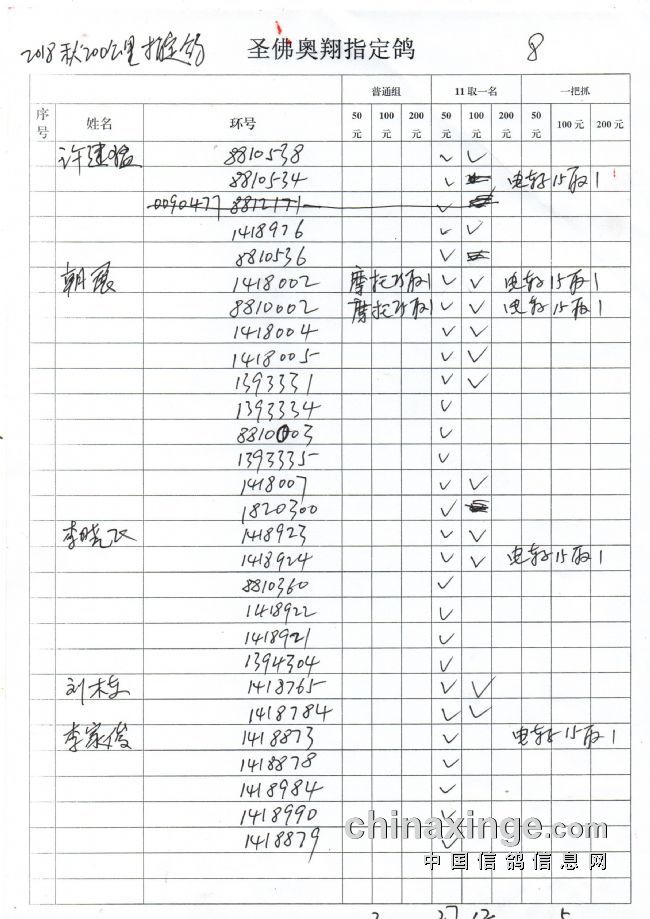 2018秋200公里指定鸽 圣佛奥翔指定鸽 8
普通组 11取一名 一把抓
序号 姓名 环号 50元 100元 200元 50元 100元 200元 50元 100元 200元
许建猛 8810538 ✓ ✓
8810534 ✓ 电车15取1
0090477 8812171 ✓
1418976 ✓ ✓
8810536 ✓
朝晨 1418002 摩托25取1 ✓ ✓ 电车15取1
8810002 摩托25取1 ✓ ✓ 电车15取1
1418004 ✓ ✓
1418005 ✓ ✓
1393331 ✓ ✓
1393334 ✓
8810003 ✓
1393335 ✓
1418007 ✓ ✓
1820300 ✓
李晓 1418923 ✓ ✓
1418924 ✓ ✓ 电车15取1
8810360 ✓
1418922 ✓
1418921 ✓
1394304 ✓
刘 1418765 ✓ ✓
1418784 ✓ ✓
李家俊 1418873 ✓ 电车15取1
1418878 ✓
1418984 ✓
1418990 ✓
1418879 ✓
chinaxinge.com
中国信鸽信息网